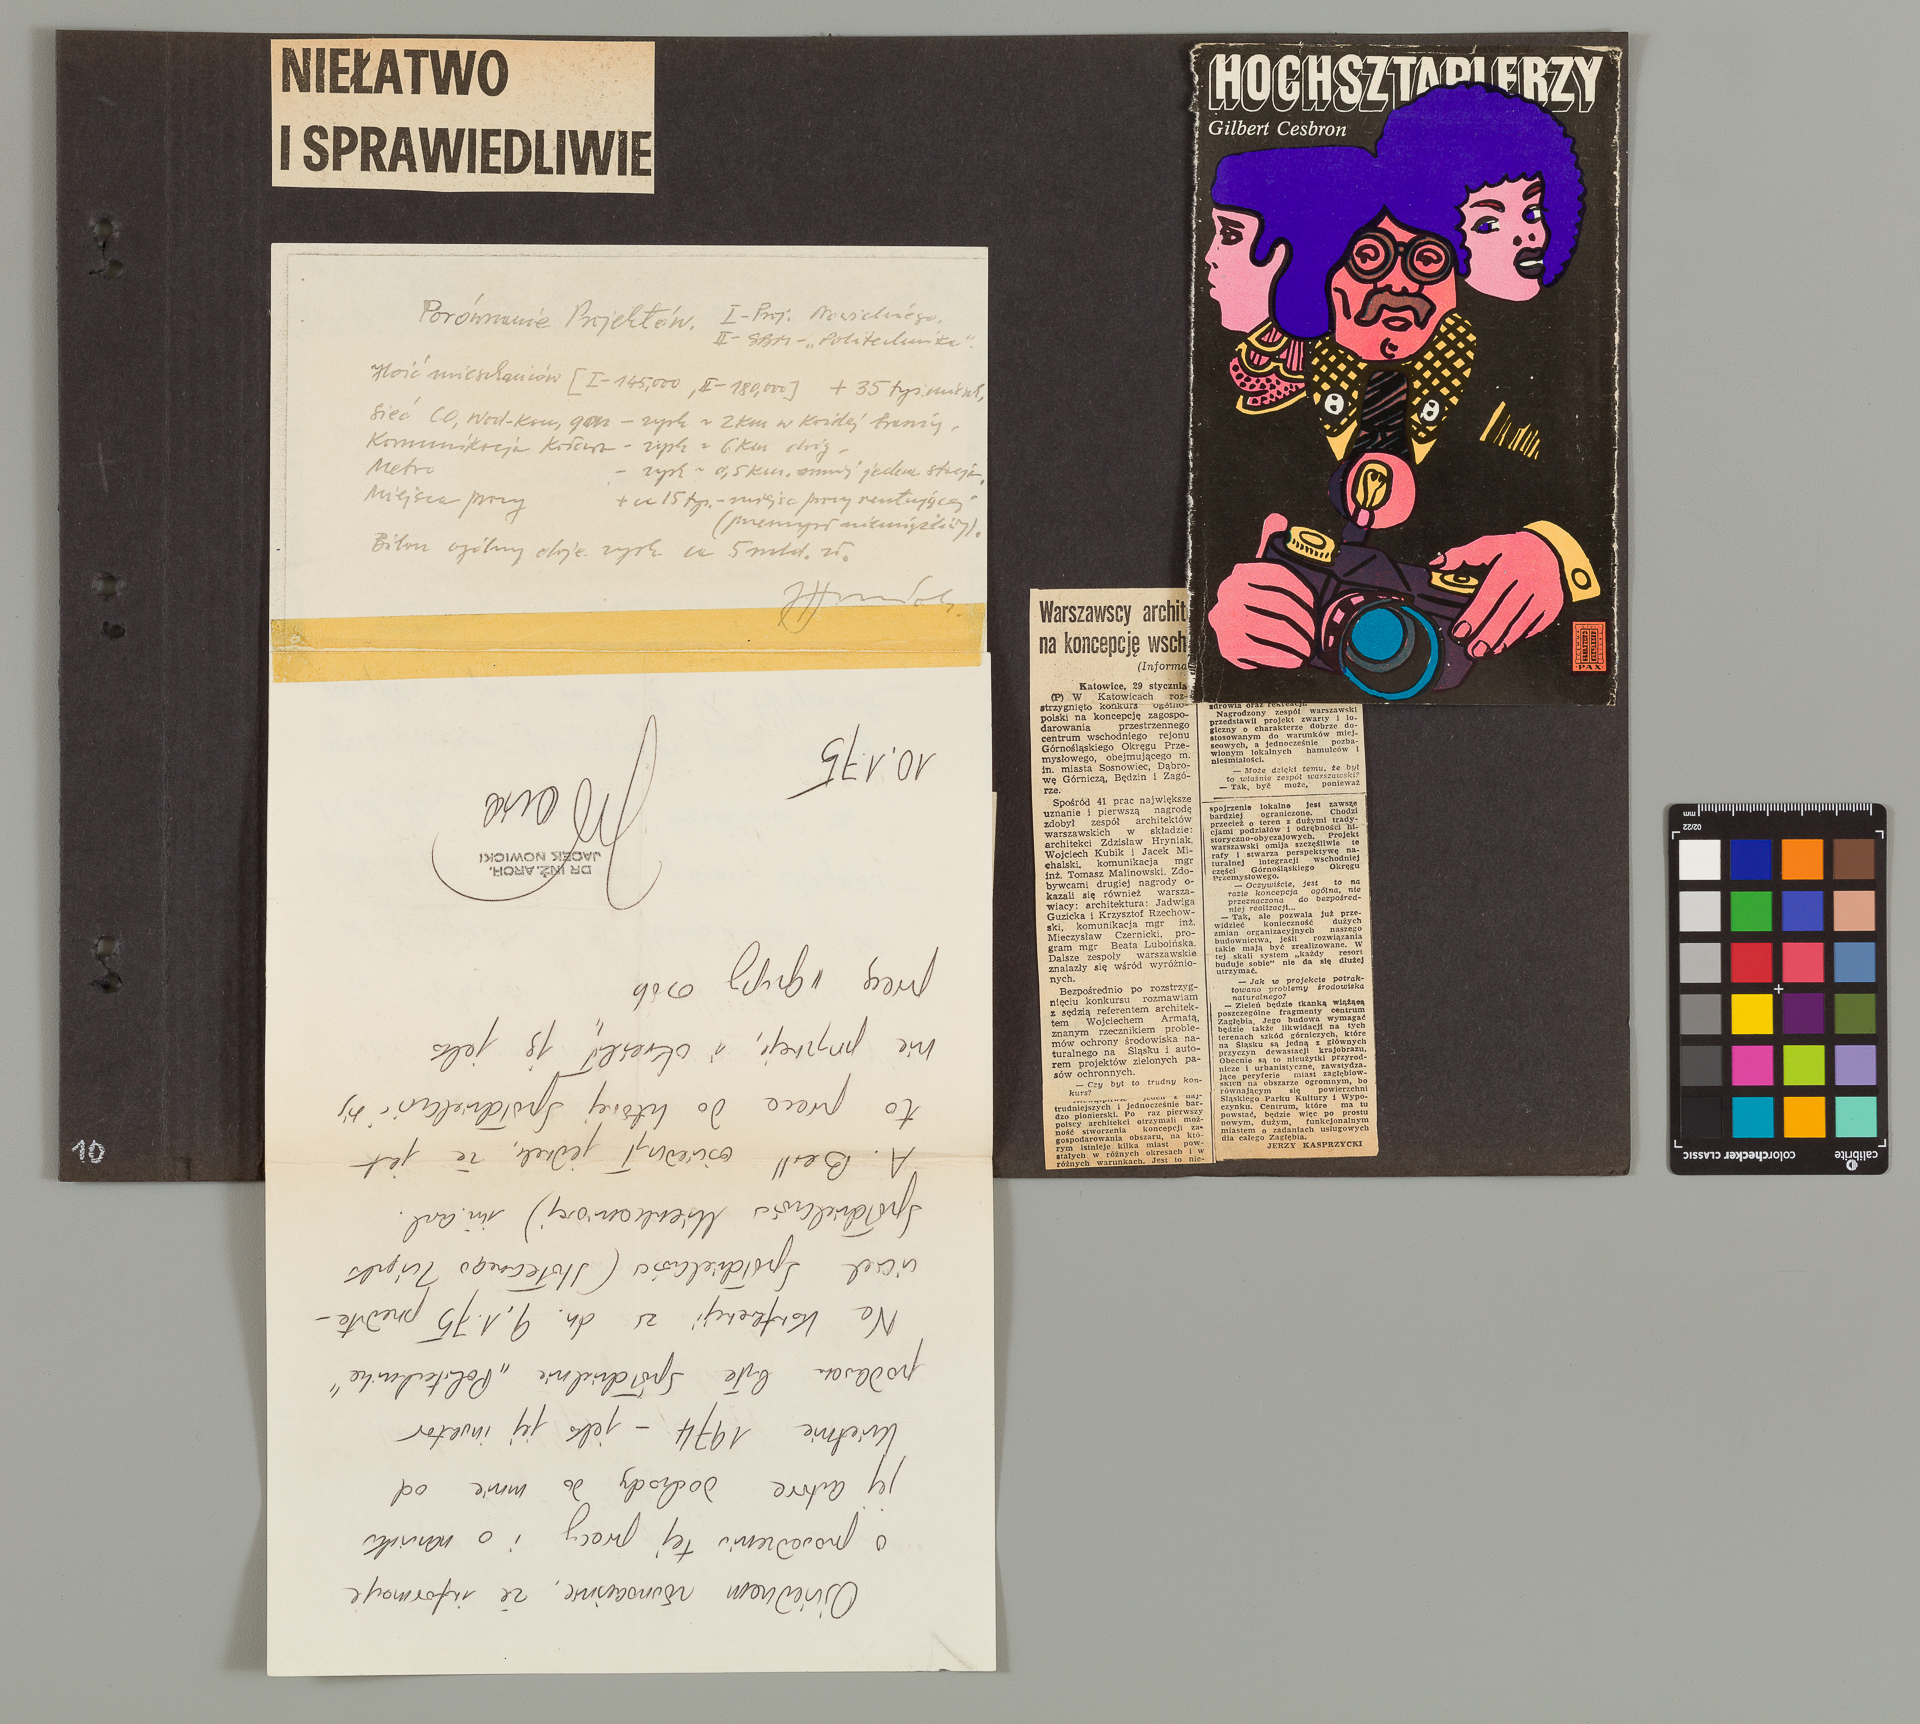 NIEŁATWO
I SPRAWIEDLIWIE
HOCHSZTAPLERZY
Gilbert Cesbron
PAX
Porównanie Projektów. I - Proj. Nowickiego.
II - SBM - „Politechnika".
Ilość mieszkańców [I - 145,000, II - 180,000] + 35 tys. mieszk,
Sieć CO, Wod-Kan, gaz - zysk ~ 2 km w każdej branży.
Komunikacja Kołowa - zysk ~ 6 km dróg.
Metro - zysk ~ 0,5 km. mniej jedna stacja.
Miejsca pracy + ca 15 tys. - miejsc pracy
(przemysł nieuciążliwy).
Bilans ogólny daje zysk ca 5 mld. zł.
Oświadczam równocześnie, że informacje
o prowadzeniu tej pracy i o nazwisku
jej autora dochodzą do mnie od
kwietnia 1974 - jako jej inwestor
podawana była Spółdzielnia „Politechnika"
Na konferencji w dn. 9.1.75 przedsta-
wiciel Spółdzielczości (Stołecznego Związku
Spółdzielczości Mieszkaniowej) inż. arch.
A. Bell oświadczył jednak, że jest
to praca do której Spółdzielczość się
nie przyznaje, i określił ją jako
pracę „grupy osób"
10.1.75
DR INŻ. ARCH.
JACEK NOWICKI
Warszawscy archit
na koncepcję wsch
(Informa
Katowice, 29 stycznia
(P) W Katowicach roz-
strzygnięto konkurs ogólno-
polski na koncepcję zagospo-
darowania przestrzennego
centrum wschodniego rejonu
Górnośląskiego Okręgu Prze-
mysłowego, obejmującego m.
in. miasta Sosnowiec, Dąbro-
wę Górniczą, Będzin i Zagó-
rze.
Spośród 41 prac największe
uznanie i pierwszą nagrodę
zdobył zespół architektów
warszawskich w składzie:
architekci Zdzisław Hryniak,
Wojciech Kubik i Jacek Mi-
chalski, komunikacja mgr
inż. Tomasz Malinowski. Zdo-
bywcami drugiej nagrody o-
kazali się również warsza-
wiacy: architektura: Jadwiga
Guzicka i Krzysztof Rzechow-
ski, komunikacja mgr inż.
Mieczysław Czernicki, pro-
gram mgr Beata Luboińska.
Dalsze zespoły warszawskie
znalazły się wśród wyróżnio-
nych.
Bezpośrednio po rozstrzyg-
nięciu konkursu rozmawiam
z sędzią referentem architek-
tem Wojciechem Armatą,
znanym rzecznikiem proble-
mów ochrony środowiska na-
turalnego na Śląsku i auto-
rem projektów zielonych pa-
sów ochronnych.
— Czy był to trudny kon-
kurs?
trudniejszych i jednocześnie bar-
dzo pionierski. Po raz pierwszy
polscy architekci otrzymali moż-
ność stworzenia koncepcji za-
gospodarowania obszaru, na któ-
rym istnieje kilka miast pow-
stałych w różnych okresach i w
różnych warunkach. Jest to nie-
zdrowia oraz rekreacji.
Nagrodzony zespół warszawski
przedstawił projekt zwarty i lo-
giczny o charakterze dobrze do-
stosowanym do warunków miej-
scowych, a jednocześnie pozba-
wionym lokalnych hamulców i
nieśmiałości.
— Może dzięki temu, że był
to właśnie zespół warszawski?
— Tak, być może, ponieważ
spojrzenie lokalne jest zawsze
bardziej ograniczone. Chodzi
przecież o teren z dużymi trady-
cjami podziałów i odrębności hi-
storyczno-obyczajowych. Projekt
warszawski omija szczęśliwie te
rafy i stwarza perspektywę na-
turalnej integracji wschodniej
części Górnośląskiego Okręgu
Przemysłowego.
— Oczywiście, jest to na
razie koncepcja ogólna, nie
przeznaczona do bezpośred-
niej realizacji...
— Tak, ale pozwala już prze-
widzieć konieczność dużych
zmian organizacyjnych naszego
budownictwa, jeśli rozwiązania
takie mają być zrealizowane. W
tej skali system „każdy resort
buduje sobie" nie da się dłużej
utrzymać.
— Jak w projekcie potrak-
towano problemy środowiska
naturalnego?
— Zieleń będzie tkanką wiążącą
poszczególne fragmenty centrum
Zagłębia. Jego budowa wymagać
będzie także likwidacji na tych
terenach szkód górniczych, które
na Śląsku są jedną z głównych
przyczyn dewastacji krajobrazu.
Obecnie są to nieużytki przyrod-
nicze i urbanistyczne, zawstydza-
jące peryferie miast zagłębiow-
skich na obszarze ogromnym, bo
równającym się powierzchni
Śląskiego Parku Kultury i Wypo-
czynku. Centrum, które ma tu
powstać, będzie więc po prostu
nowym, dużym, funkcjonalnym
miastem o zadaniach usługowych
dla całego Zagłębia.
JERZY KASPRZYCKI
10
mm
02/22
colorchecker CLASSIC
calibrite